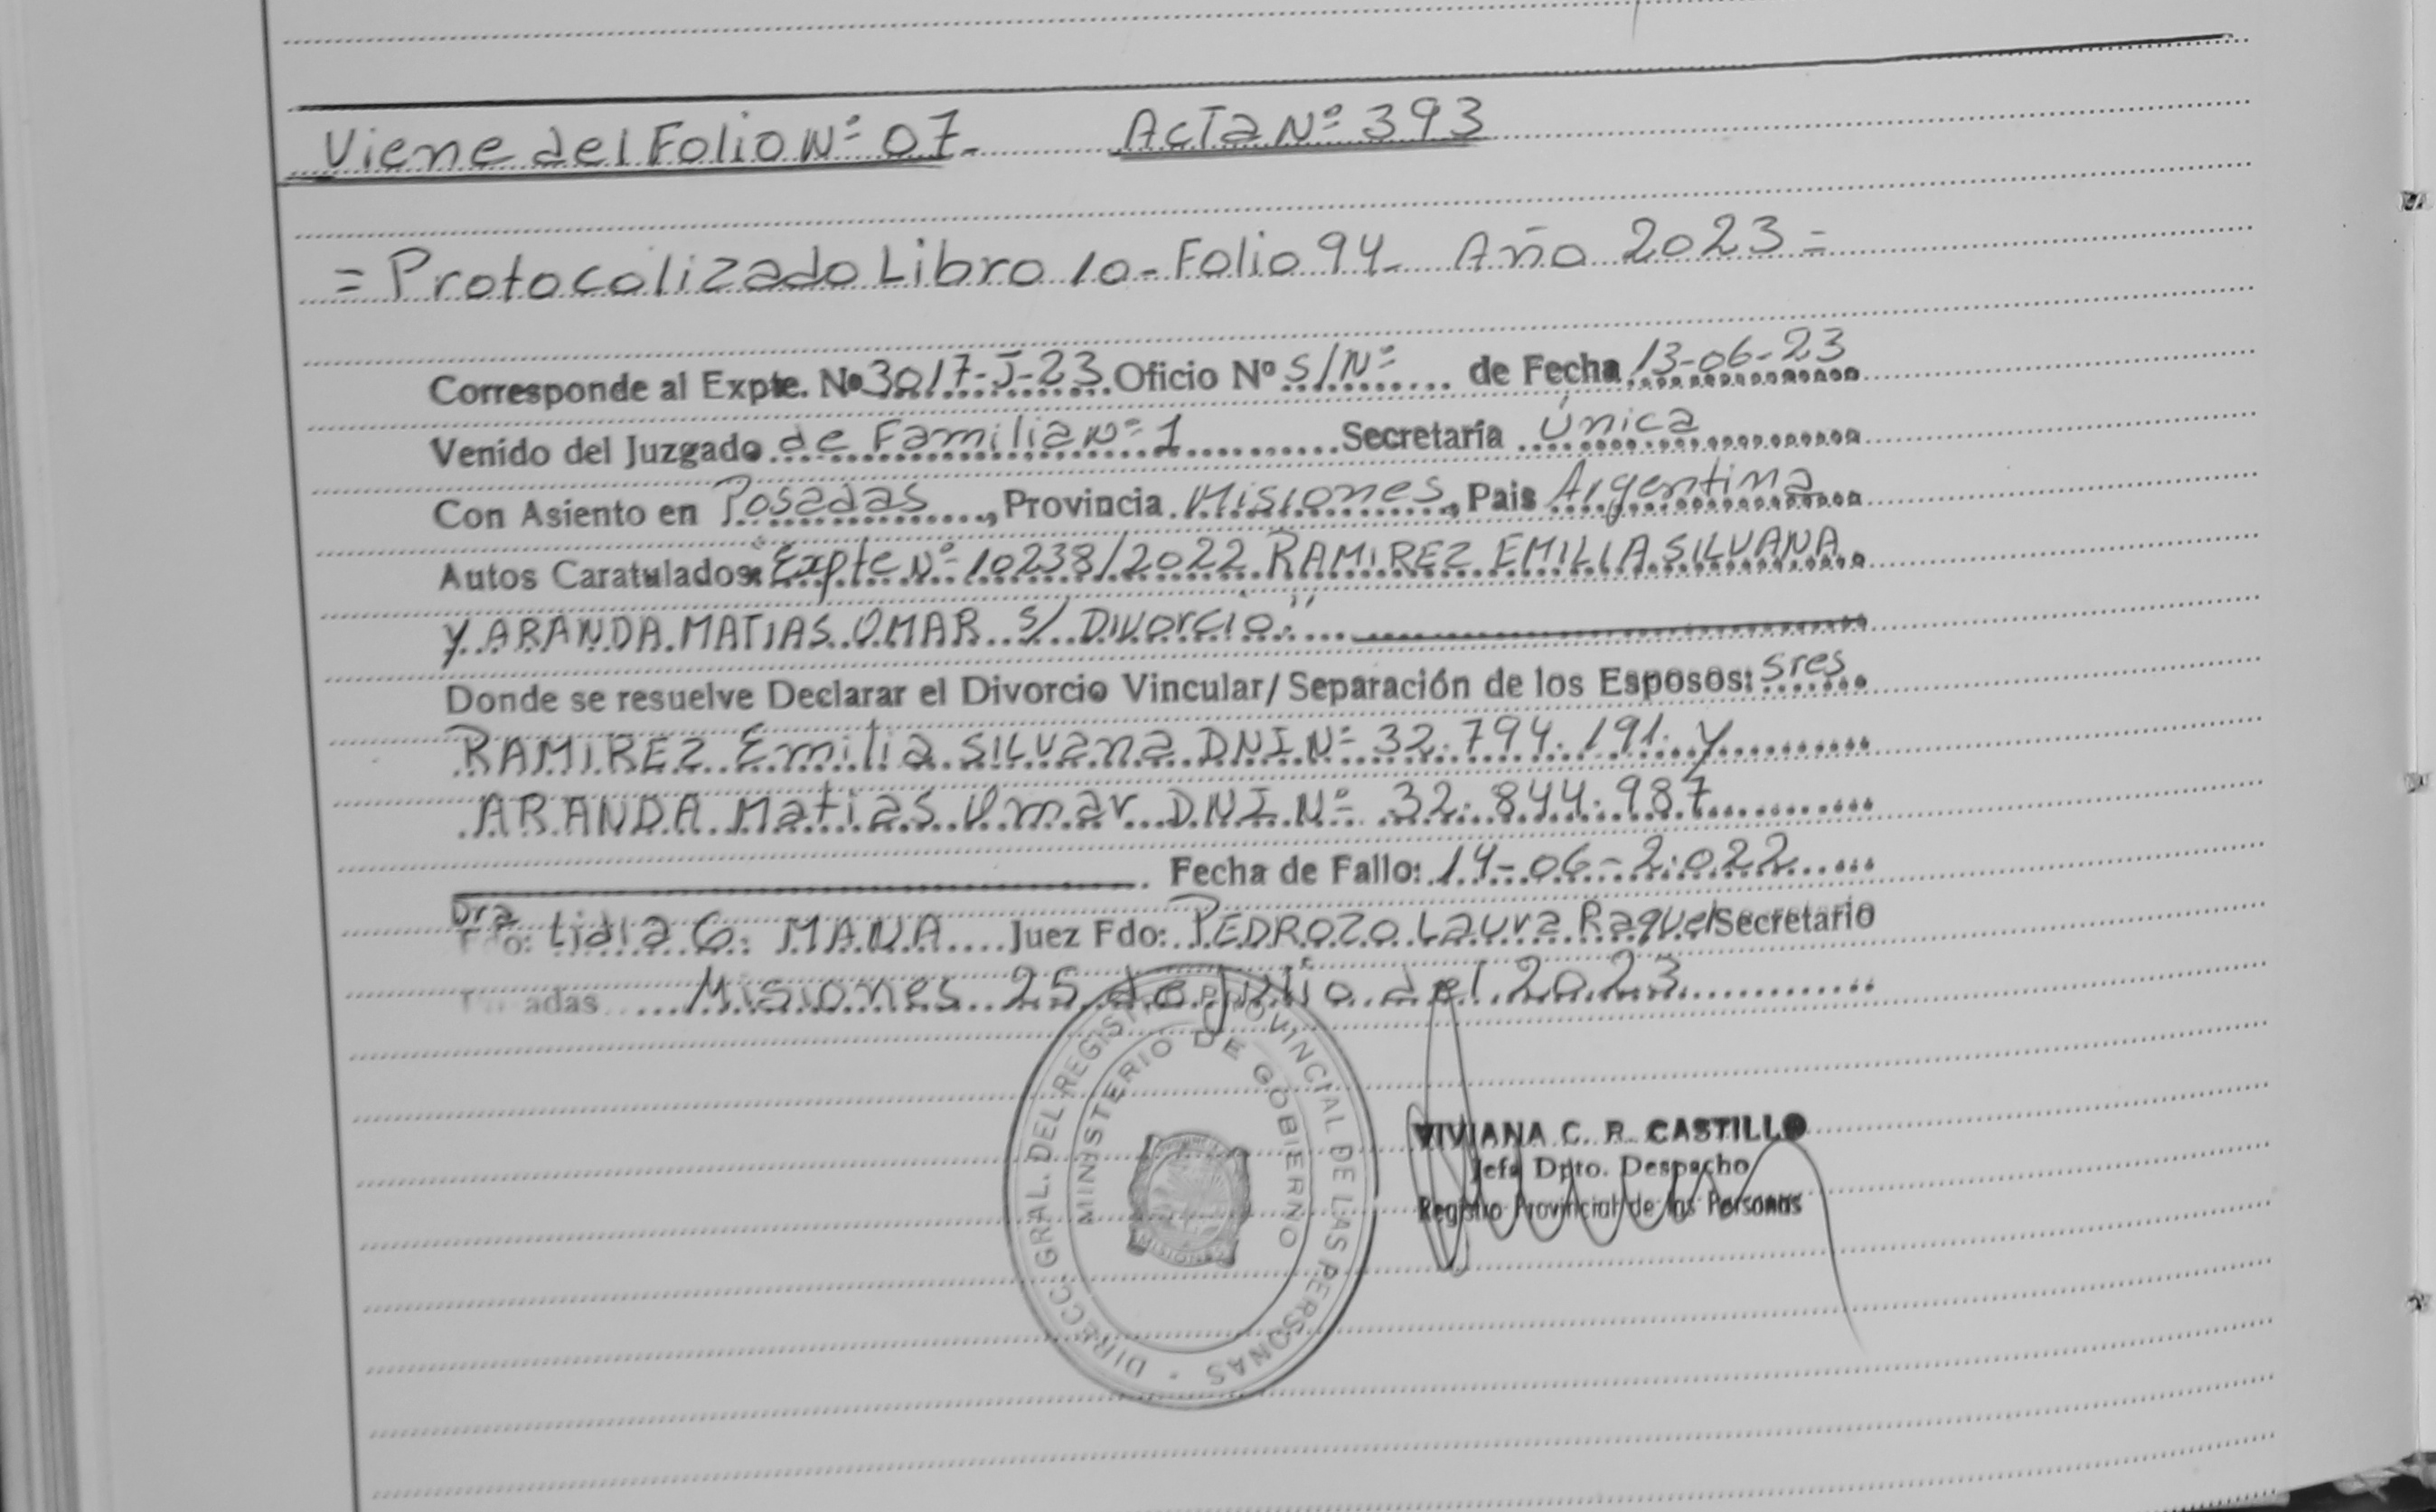 Viene del Folio Nº 07- Acta Nº 393
= Protocolizado Libro 10- Folio 94- Año 2023 =
Corresponde al Expte. Nº 3017-J-23 Oficio Nº S/Nº de Fecha 13-06-23
Venido del Juzgado de Familia Nº 1 Secretaría Única
Con Asiento en Posadas, Provincia Misiones, Pais Argentina
Autos Caratulados: "Expte Nº 10238/2022 RAMIREZ EMILIA SILVANA
y ARANDA MATIAS OMAR s/ Divorcio"
Donde se resuelve Declarar el Divorcio Vincular/Separación de los Esposos: Sres
RAMIREZ Emilia SILVana DNI Nº 32.794.191 y
ARANDA Matias Omar DNI Nº 32.844.987
Fecha de Fallo: 14-06-2022
Dra
Fdo: Lidia G. MANA Juez Fdo: PEDROZO Laura Raquel Secretario
adas Misiones 25 de Julio del 2023
DIRECC. GRAL. DEL REGISTRO PROVINCIAL DE LAS PERSONAS
MINISTERIO DE GOBIERNO
MISIONES
VIVIANA C. R. CASTILLO
Jefa Dpto. Despacho
Registro Provincial de las Personas